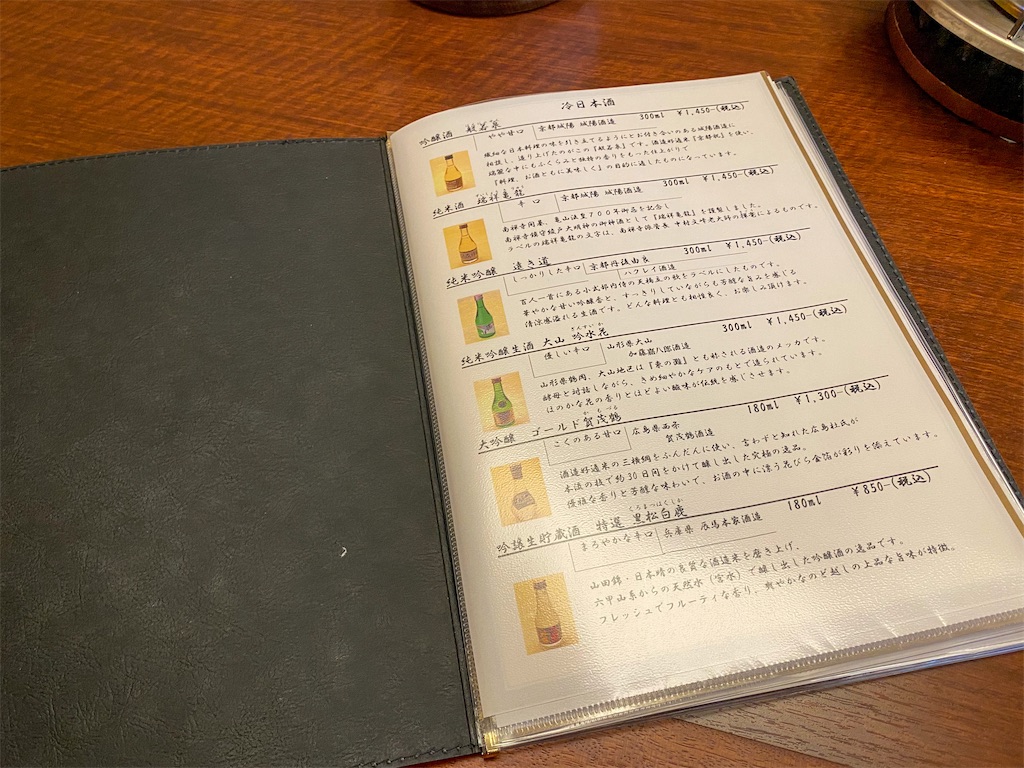 冷日本酒
吟醸酒 般若湯 300ml ￥1,450-(税込)
やや甘口 京都城陽 城陽酒造
繊細な日本料理の味を引き立てるようにとお付き合いのある城陽酒造に
相談し、造り上げたのがこの『般若湯』です。酒造好適米『京都祝』を使い、
端麗な中にもふくらみと独特の香りをもった仕上がりで
『料理、お酒ともに美味しく』の目的に適したものになっています。
純米酒 瑞祥亀龍 300ml ￥1,450-(税込)
辛口 京都城陽 城陽酒造
南禅寺開基、亀山法皇700年御忌を記念し
南禅寺鎮守綾戸大明神の御神酒として『瑞祥亀龍』を謹製しました。
ラベルの瑞祥亀龍の文字は、南禅寺派管長 中村文峰老大師の揮毫によるものです。
純米吟醸 遠き道 300ml ￥1,450-(税込)
しっかりした辛口 京都丹後由良
ハクレイ酒造
百人一首にある小式部内侍の天橋立の歌をラベルにしたものです。
華やかな甘い吟醸香と、すっきりしていながらも芳醇な旨みを感じる
清涼感溢れる生酒です。どんな料理とも相性良く、お楽しみ頂けます。
ぎんすいか
純米吟醸生酒 大山 吟水花 300ml ￥1,450-(税込)
優しい辛口 山形県大山
加藤嘉八郎酒造
山形県鶴岡、大山地区は『東の灘』とも称される酒造のメッカです。
酵母と対話しながら、きめ細やかなケアのもとで造られています。
ほのかな花の香りとほどよい酸味が伝統を感じさせます。
かもづる
大吟醸 ゴールド賀茂鶴 180ml ￥1,300-(税込)
こくのある甘口 広島県西条
賀茂鶴酒造
酒造好適米の三横綱をふんだんに使い、言わずと知れた広島杜氏が
本流の技で約30日間をかけて醸し出した究極の逸品。
優雅な香りと芳醇な味わいで、お酒の中に漂う花びら金箔が彩りを添えています。
くろまつはくしか
吟醸生貯蔵酒 特選 黒松白鹿 180ml ￥850-(税込)
まろやかな辛口 兵庫県 辰馬本家酒造
山田錦・日本晴の良質な酒造米を磨き上げ、
六甲山系からの天然水（宮水）で醸し出した吟醸酒の逸品です。
フレッシュでフルーティな香り、爽やかなのど越しの上品な旨味が特徴。